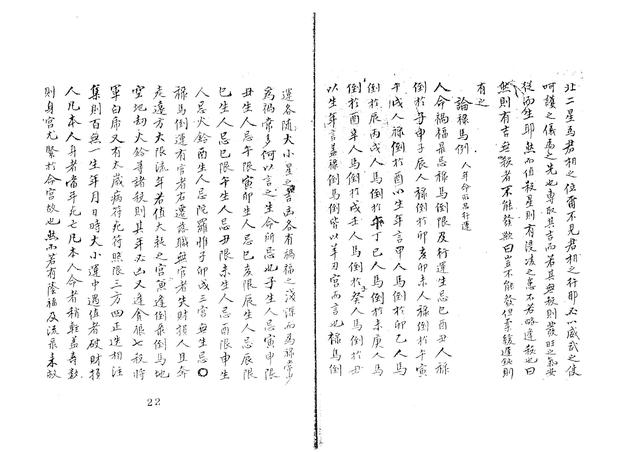 北二星為君相之位爾不見君相之行耶必以威武之使
呵護之儀為之先也專取其吉而若其無殺則發旺之氣
從而生耶然而值殺星則有浸凌之患不若略逢殺也曰
然則有吉無殺者不能發歟曰豈不能發但季緩遲鈍則
有之
論祿馬倒 人年命
人命禍福最忌祿馬倒限及行運生忌巳丑人祿
倒於寅申子辰人祿倒於卯亥卯未人祿倒於午寅
午戌人祿倒於酉以生年言甲人馬倒於卯乙人馬
倒於辰丙戌人馬倒於午丁己人馬倒於未庚人馬
倒於酉辛人馬倒於戌壬人馬倒於癸人馬倒於丑
以生年言蓋祿倒馬倒皆以羊刃宮而言也祿馬倒
運各隨大小星之吉凶各有禍福之淺深而為祿常
為禍常多何以言之生命所忌也子生人忌寅申限
丑生人忌午限寅卯生人忌巳亥限辰生人忌辰限
巳生人忌巳限午生人忌丑限未生人忌酉限申生
人忌火鈴酉生人忌陀羅惟子卯戌三宮無生忌〇
祿馬倒運有官者右遷落職無官者失財損人且奔
走遠方大限流年若值大耗之宮並逢倒祿倒馬地
空地劫火鈴等諸殺則其年必凶又逢貪狼七殺將
軍白虎又有太歲病符死符照限三方四正迭相注
集則百無一生年月日時大小運中遇值者破財損
人凡本人身者當年死亡凡本人命者稍輕蓋壽數
則身宮尤緊於命宮故也然而若有陰福及流祿來救
22